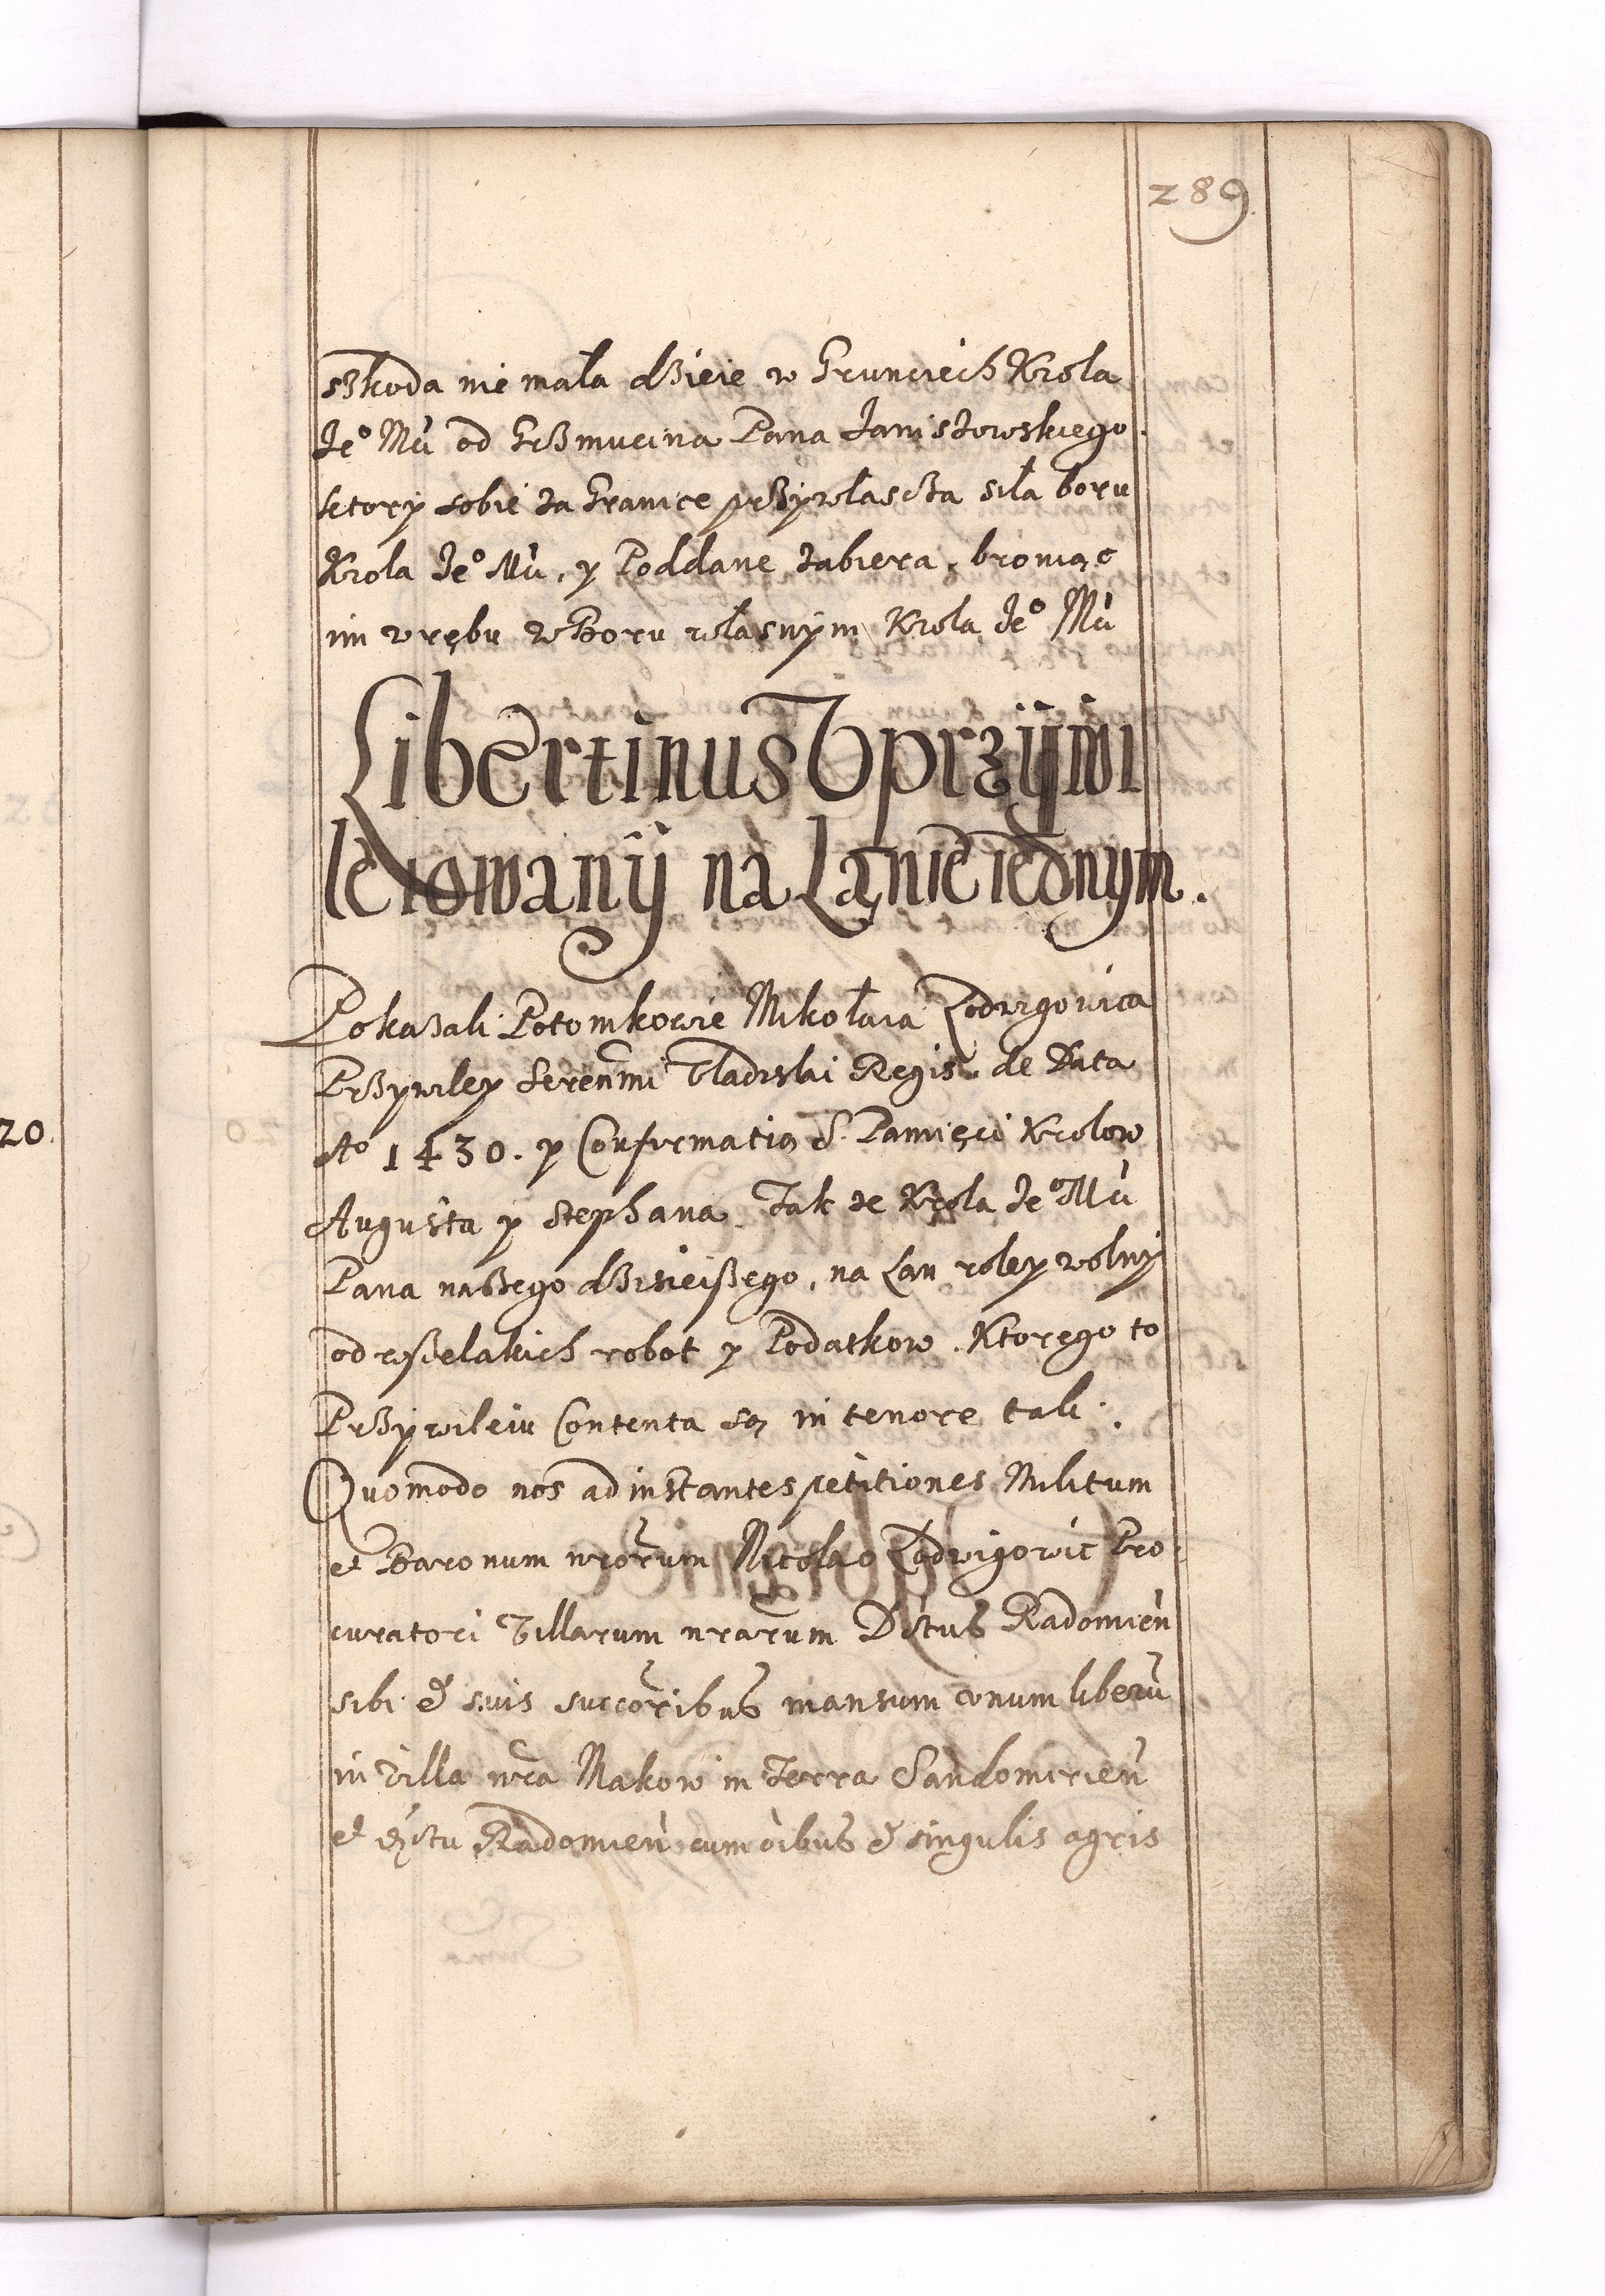 289
sßkoda nie mała dßieie w Grunciech Krola
Jeº Mći od Grßmucina Pana Janiszowskiego.
ktory sobie za Granice prßywłascza siła boru
Krola Jeº Mći, y Poddane zabiera, broniąc
im wrębu w Boru własnym Krola Jeº Mći
Libertinus Vprzÿwi
leiowanÿ na Łanie iednym.
Pokaßali Potomkowie Mikołaia Lodwigowica
Prßywiley Serenmi Vladislai Regis. de Data
Aº 1430. y Confirmatią S. Pamięci Krolow
Augusta y Stephana. Tak ze Krola Jeº Mći
Pana naßego dßisieißego, na Łan roley wolny
od wßelakich robot y Podatkow. Ktorego to
Prßywileiu Contenta są in tenore tali.
Quomodo nos ad instantes petitiones Militum
et Baronum nrorum Nicolao Lodwigowic Pro-
curatori Villarum nrarum Dictus Radomien
sibi et suis succoribus mansum vnum liberu
in Villa nra Makow in Terra Sandomirien
et dictu Radomien cum oibus et singulis agris
20.